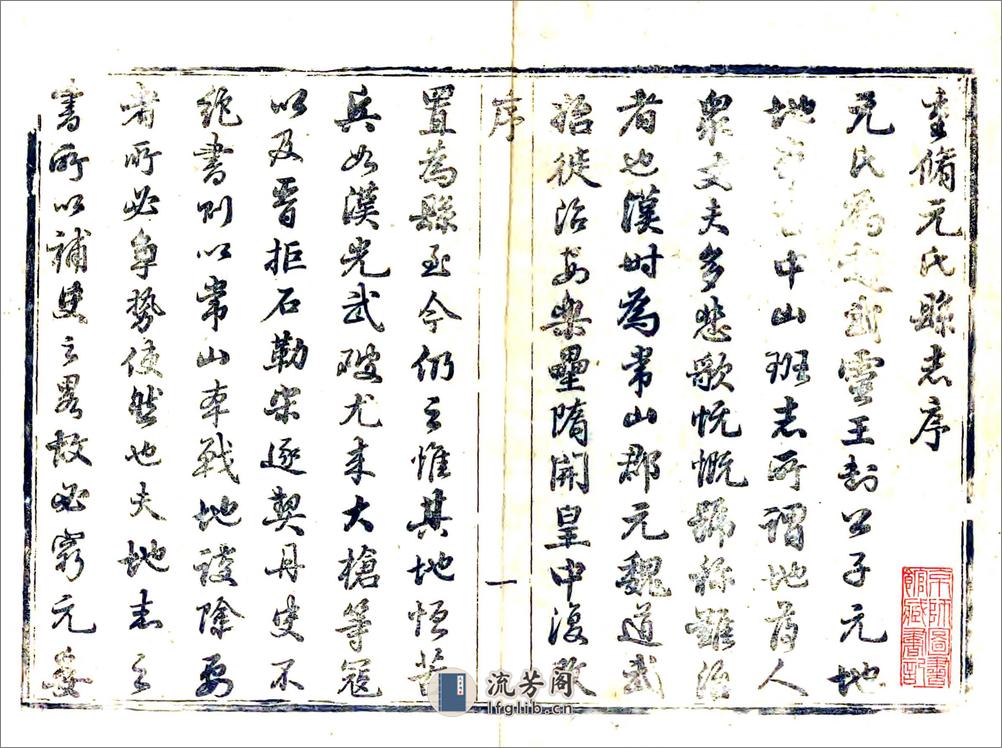 重脩元氏縣志序
元氏為趙武靈王封公子元地
地中山班志所謂地薄人
衆丈夫多悲歌忼慨號稱難治
者也漢时為常山郡元魏道武
始徙治安樂壘隋開皇中復改
序
一
置為縣至今仍之惟其地恒苦
兵如漢光武破尤来大槍等寇
以及晋拒石勒宋逐契丹史不
絶書則以常山本戰地設險要
者所必争勢使然也夫地志之
書所以補史之畧故必窮元委
京師圖書
館藏書記
流芳阁
lfglib.cn